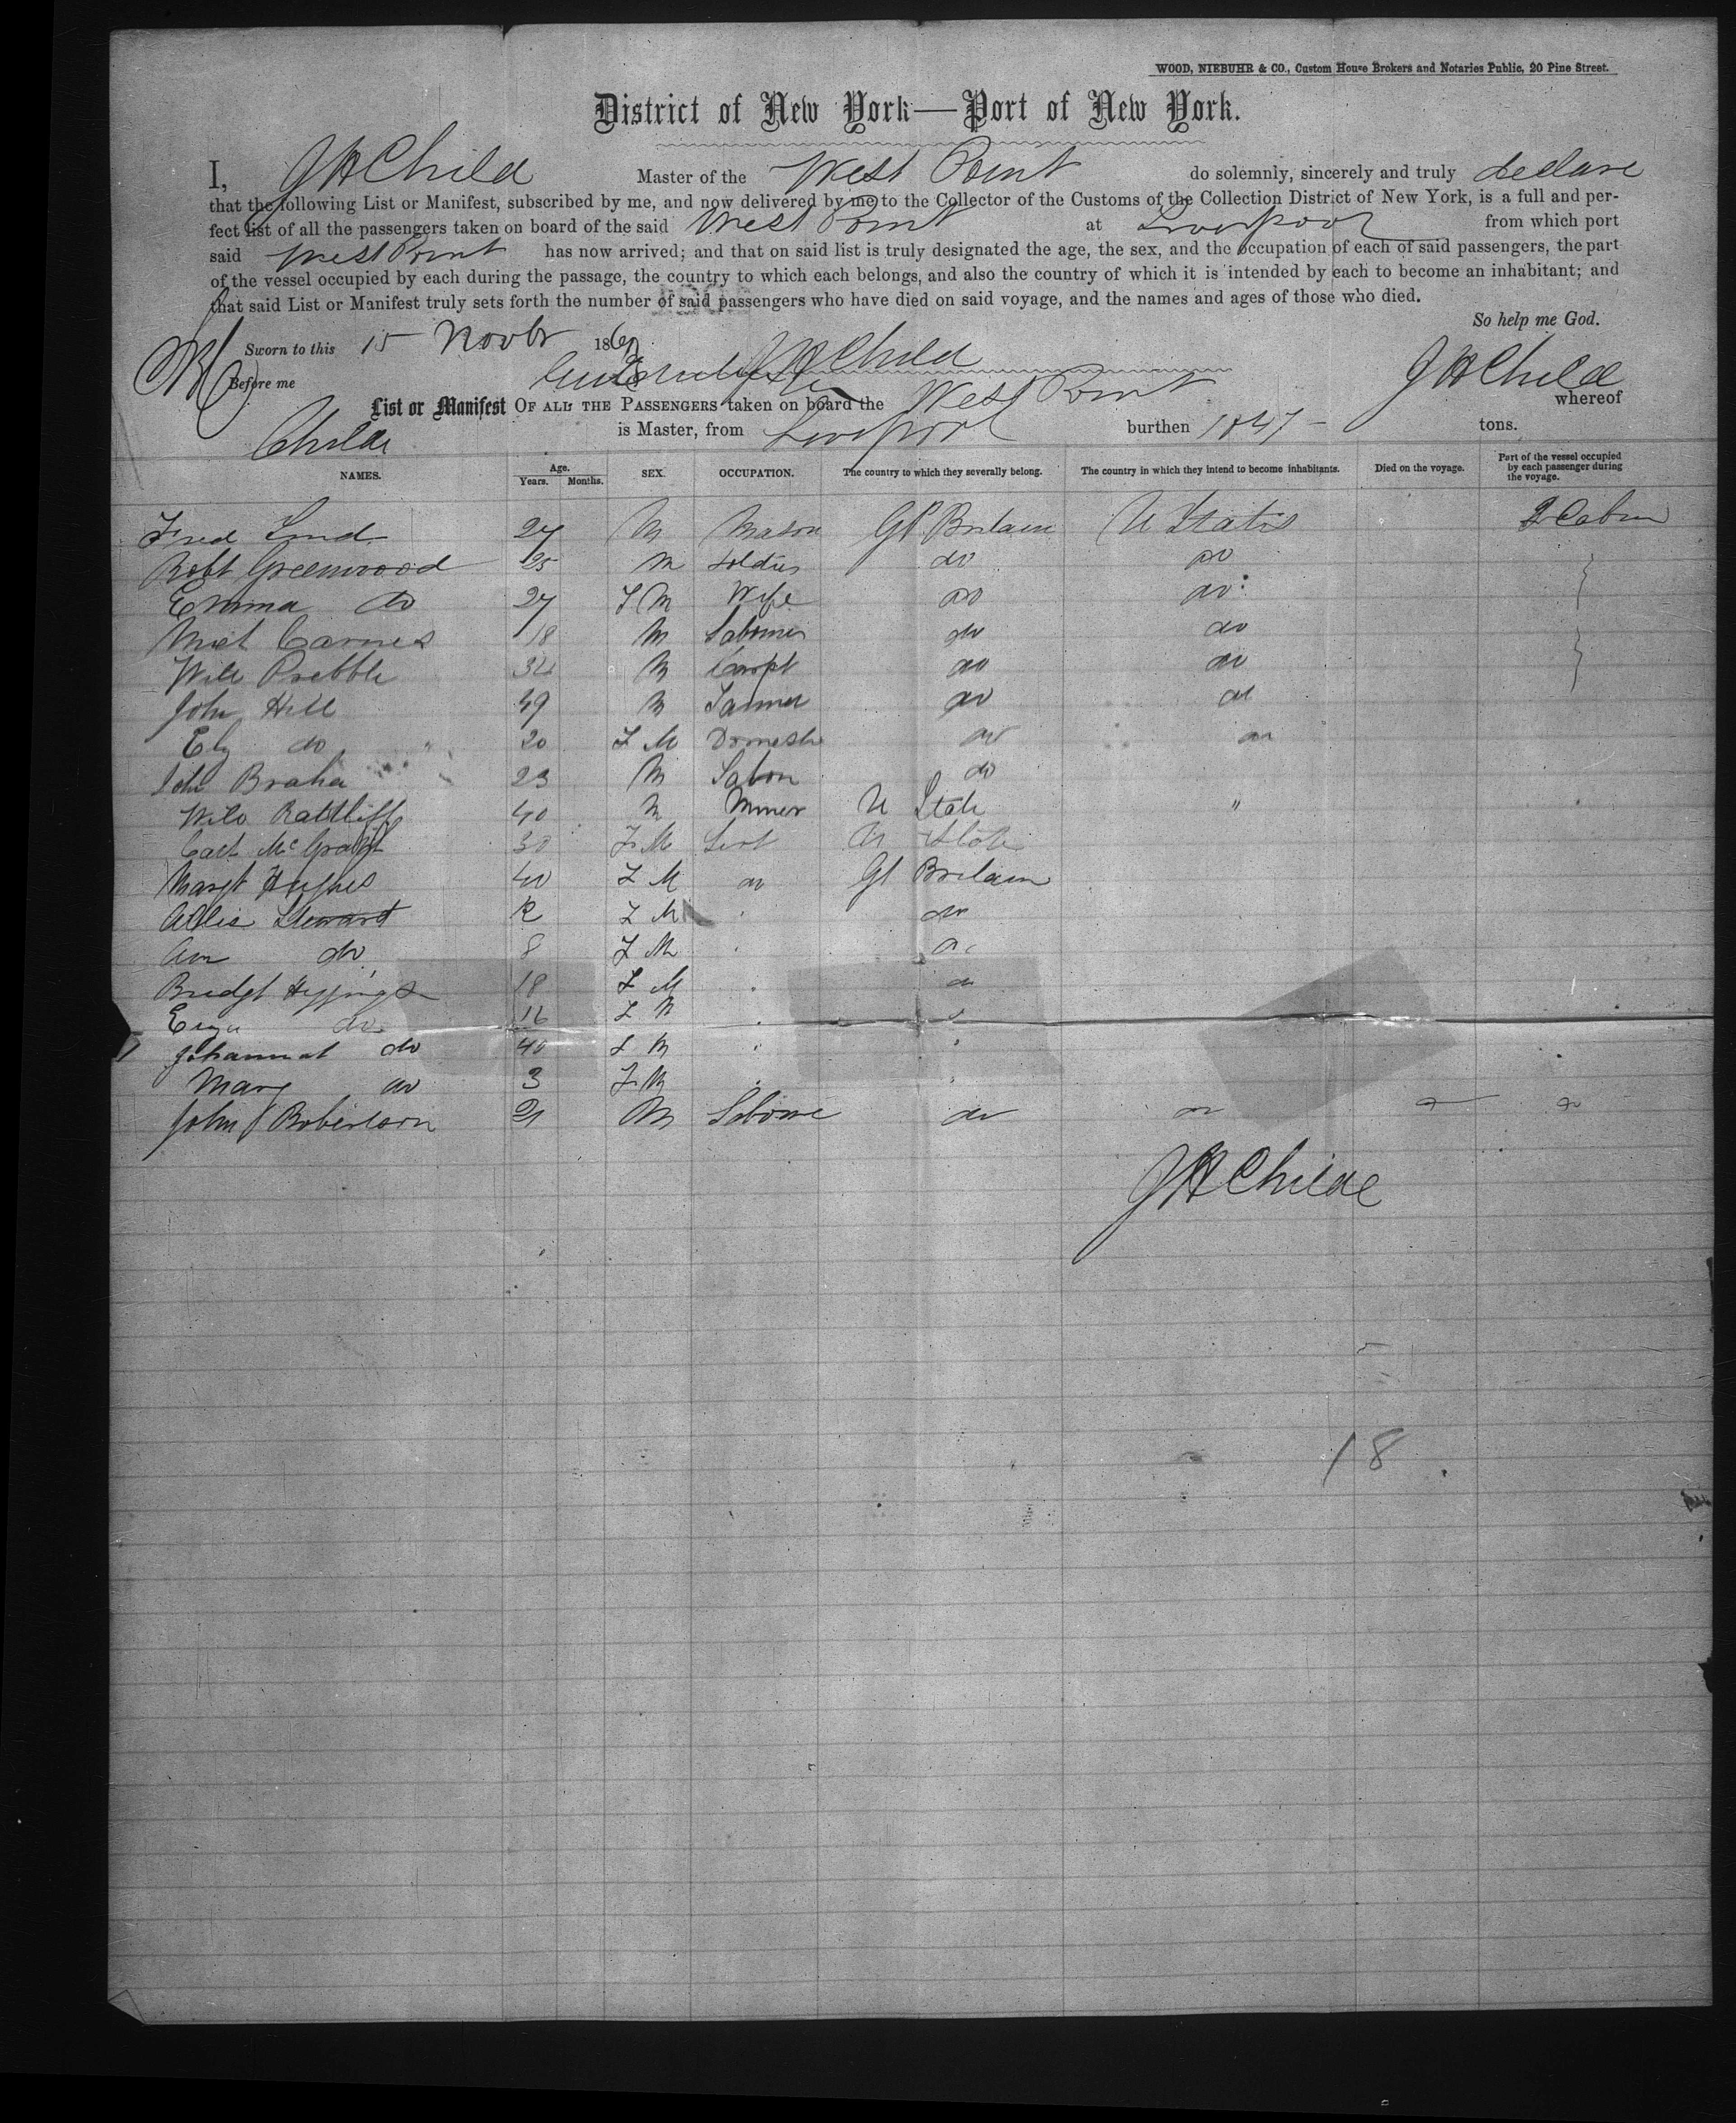 WOOD, NIEBUHR & CO., Custom House Brokers and Notaries Public, 20 Pine Street.
District of New York—Port of New York.
I, J H Child Master of the West Point do solemnly, sincerely and truly declare
that the following List or Manifest, subscribed by me, and now delivered by me to the Collector of the Customs of the Collection District of New York, is a full and per-
fect list of all the passengers taken on board of the said West Point at Liverpool from which port
said West Point has now arrived; and that on said list is truly designated the age, the sex, and the occupation of each of said passengers, the part
of the vessel occupied by each during the passage, the country to which each belongs, and also the country of which it is intended by each to become an inhabitant; and
that said List or Manifest truly sets forth the number of said passengers who have died on said voyage, and the names and ages of those who died.
So help me God.
Sworn to this 15 Novbr 186
J H Child
Before me
List or Manifest OF ALL THE PASSENGERS taken on board the West Point J H Child whereof
Childe is Master, from Liverpool burthen 1847 tons.
NAMES. Age. Years. Months. SEX. OCCUPATION. The country to which they severally belong. The country in which they intend to become inhabitants. Died on the voyage. Part of the vessel occupied by each passenger during the voyage.
Fred Lund 27 M Mason Gt Britain U States 2 Cabin
Robt Greenwood 25 M Soldier do do
Emma do 27 F M Wife do do
Mich Carnes 18 M Labourer do do
Will Prebble 32 M Carpt do do
John Hill 49 M Farmer do do
Elz do 20 F M Domestic do do
John Braha 23 M Labou do
Will Rattliff 40 M Miner U State "
Cath McGraft 30 F M Servt U State
Margt Hughes 40 F M do Gt Britain
Allis Stewart 12 F M do
Ann do 8 F M do
Bridgt 18 F M do
do 16 F M
Johannah do 40 F M
Mary do 3 F M
John Robertson 21 M Laboure do do do do
J H Childe
18